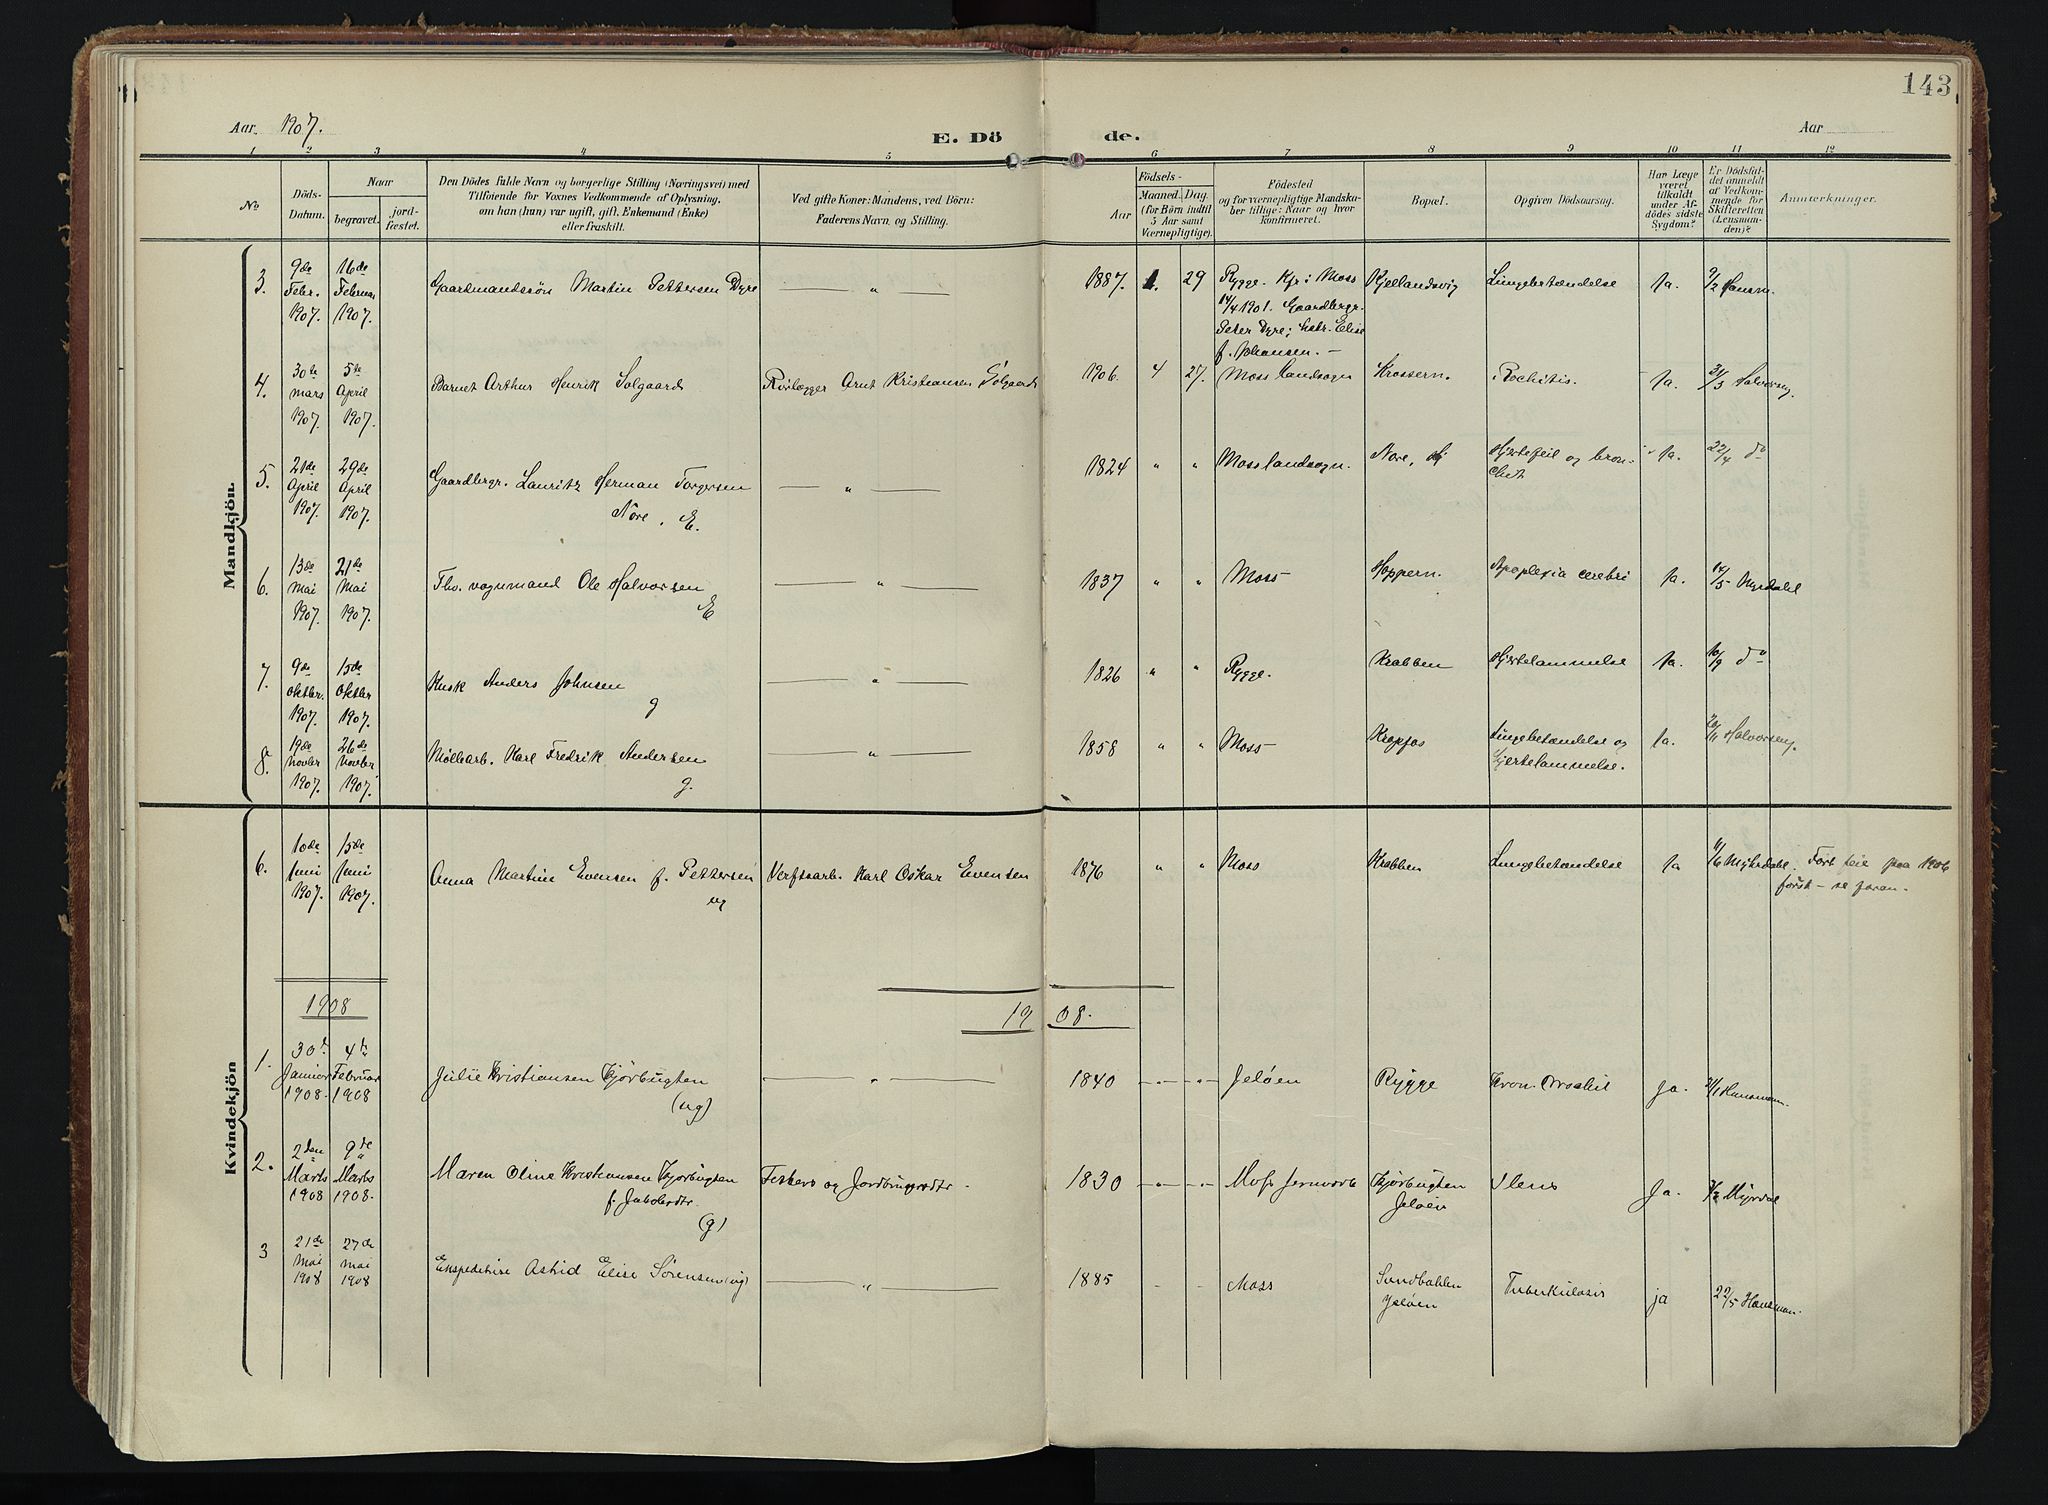 143
Aar 1907.
E. Dö de.
Aar
1 2 3 4 5 6 7 8 9 10 11 12
No
Döds-Datum.
Naar
begravet. jord-fæstet.
Den Dödes fulde Navn og borgerlige Stilling (Næringsvei) med
Tilföiende for Voxnes Vedkommende af Oplysning,
om han (hun) var ugift, gift, Enkemand (Enke)
eller fraskilt.
Ved gifte Koner: Mandens, ved Börn:
Faderens Navn og Stilling.
Födsels-
Aar
Maaned. Dag.
(for Börn indtil
5 Aar samt
Værnepligtige).
Födested
og for værnepligtige Mandska-
ber tillige: Naar og hvor
konfirmeret.
Bopæl.
Opgiven Dödsaarsag.
Har Læge
været
tilkaldt
under Af-
dödes sidste
Sygdom?
Er Dödsfal-
det anmeldt
af Vedkom-
mende for
Skifteretten
(Lensman-
den)?
Anmærkninger.
Mandkjön.
3. 9de Febr. 1907. 16de Februar 1907. Gaardmandssön Martin Pettersen Dyre — " — 1887. 1. 29 Rygge. Kf. i Moss Kjellandsvig Lungebetændelse Ja. 9/2 Hansm.
14/4 1901. Gaardbergr.
Peter Dyre; hstr. Elise
f. Johansen. —
4. 30te mars 1907. 5te April 1907. Barnet Arthur Henrik Solgaard Arnt Kristiansen Solgaard 1906. 4 27. Moss landsogn Krossern. Rachitis. Ja. 31/3 Halvorsen.
5. 21de April 1907. 29de April 1907. Gaardbergr. Lauritz Herman Torgersen — " — 1824 " " Moss landsogn. Nore, Hjertefeil og bron- Ja. 22/4 do
Nore. E. chit
6. 13de Mai 1907. 21de Mai 1907. Fhv. vognmand Ole Halvorsen — " — 1837 " " Moss Hoppern. Apoplexia cerebri Ja. 14/5 Myrdahl
E
7. 9de Oktbr. 1907. 15de Oktbr. 1907. Kusk Anders Johnsen — " — 1826 " " Rygge. Krabben Hjertelammelse Ja. 10/9 do
g
8. 19de Novbr 1907. 26de Novbr 1907. Møllearb. Karl Fredrik Andersen — " — 1858 " " Moss Krapfos Lungebetændelse og Ja. 20/11 Halvorsen.
g. Hjertelammelse.
Kvindekjön
6. 10de Juni 1907. 15de Juni 1907. Anna Martine Evensen f. Pettersen Verftsarb. Karl Oskar Evensen 1876 " " Moss Krabben Lungebetændelse Ja 11/6 Myhrdahl. Fört feie paa 1906
ug först — se foran.
1908 1908.
1. 30te Januar 1908. 4te Februar 1908 Julie Kristiansen Kjørbugten — " — 1840 - " - - " - Jeløen Rygge Kron. Ja. 31/1 Hansmann.
(ug)
2. 2den Marts 1908 9de Marts 1908. Maren Oline Kristiansen Kjørbugten Fiskers og 1830 - " - - " - Moss Jernverk Kjørbugten Ilens Ja. 3/3 Myrdal
f. Jakobsdtr. Jeløen
(g)
3 21de Mai 1908 27de mai 1908 Ekspeditrise Astrid Elise Sørensen (ug) — " — 1885 - - Moss Sandbakken Tuberkulosis ja 22/5 Hansman.
Jeløen